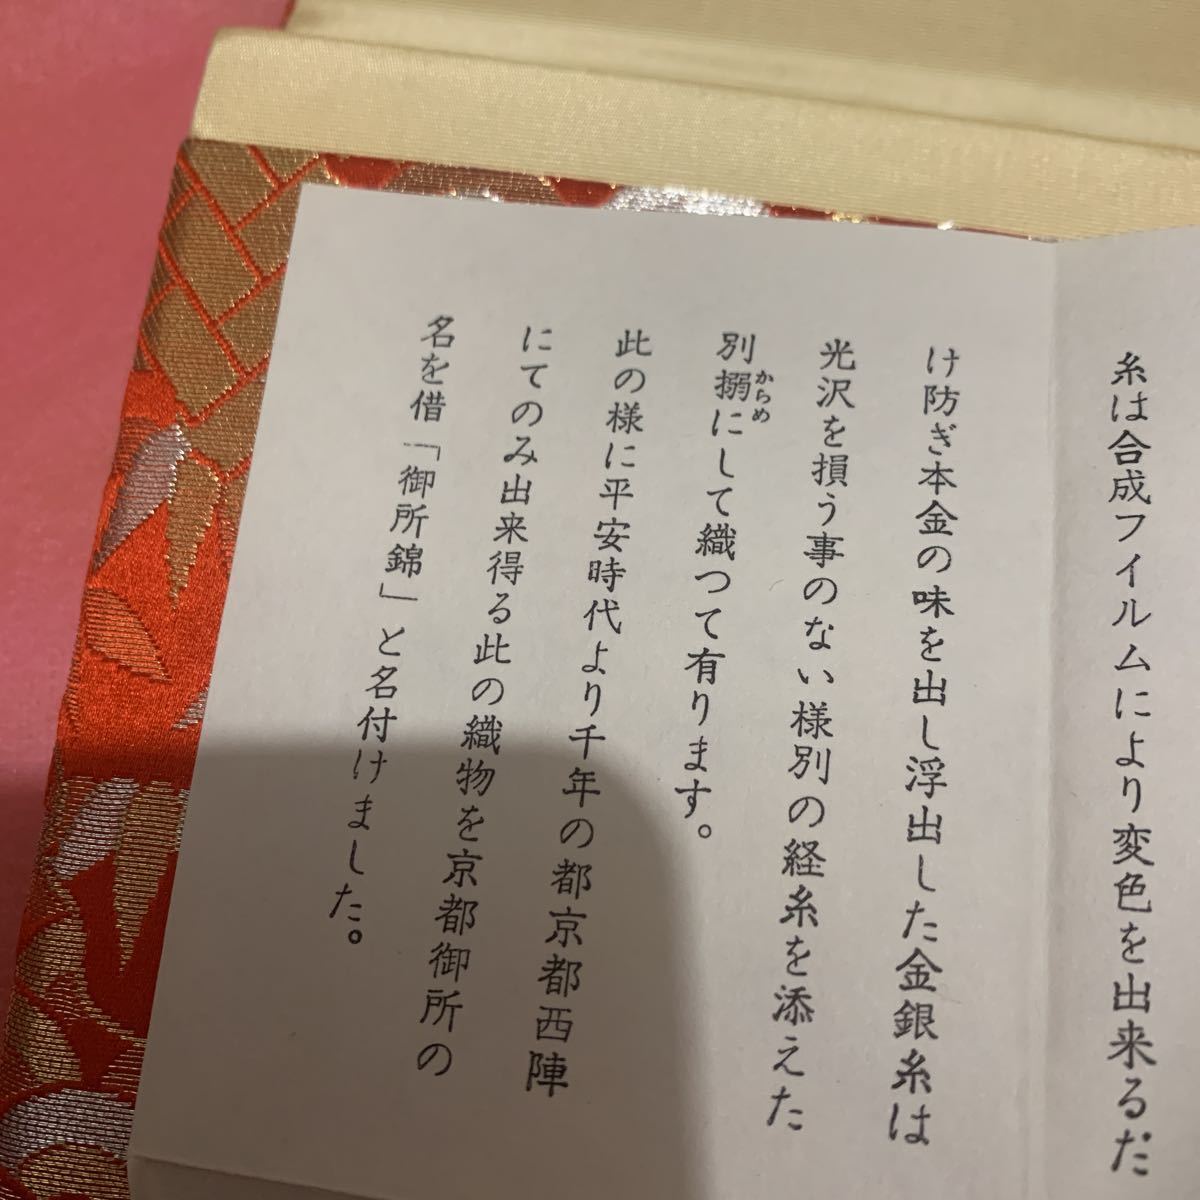 糸は合成フイルムにより変色を出来るだ
け防ぎ本金の味を出し浮出した金銀糸は
光沢を損う事のない様別の経糸を添えた
別搦にして織つて有ります。
からめ
此の様に平安時代より千年の都京都西陣
にてのみ出来得る此の織物を京都御所の
名を借「御所錦」と名付けました。